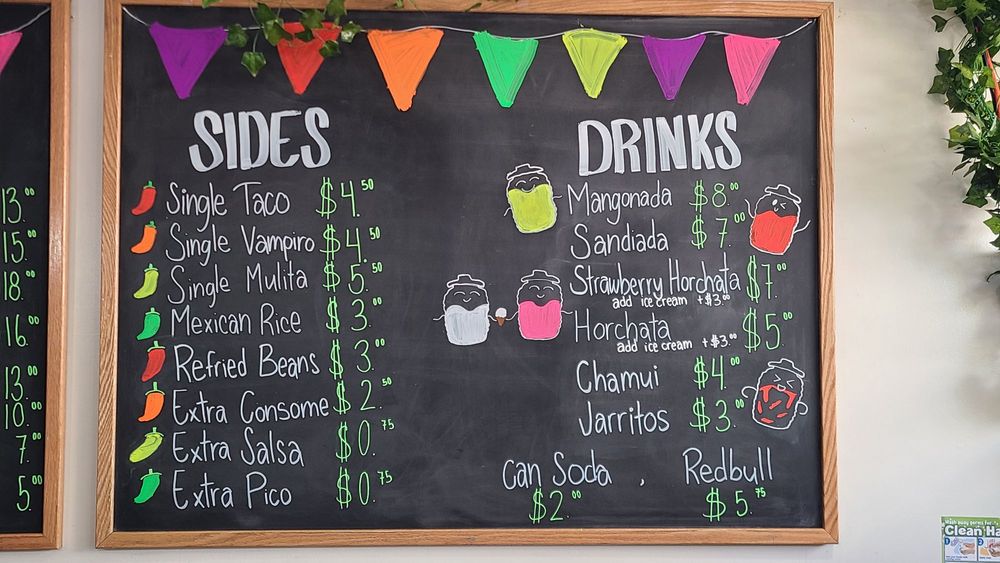 13.00
15.00
18.00
16.00
13.00
10.00
7.00
5.00
SIDES
Single Taco $4.50
Single Vampiro $4.50
Single Mulita $5.50
Mexican Rice $3.00
Refried Beans $3.00
Extra Consome $2.50
Extra Salsa $0.75
Extra Pico $0.75
DRINKS
Mangonada $8.00
Sandiada $7.00
Strawberry Horchata $7.00
add ice cream +$3.00
Horchata $5.00
add ice cream +$3.00
Chamui $4.00
Jarritos $3.00
Can Soda . Redbull
$2.00 $5.75
Clean Ha